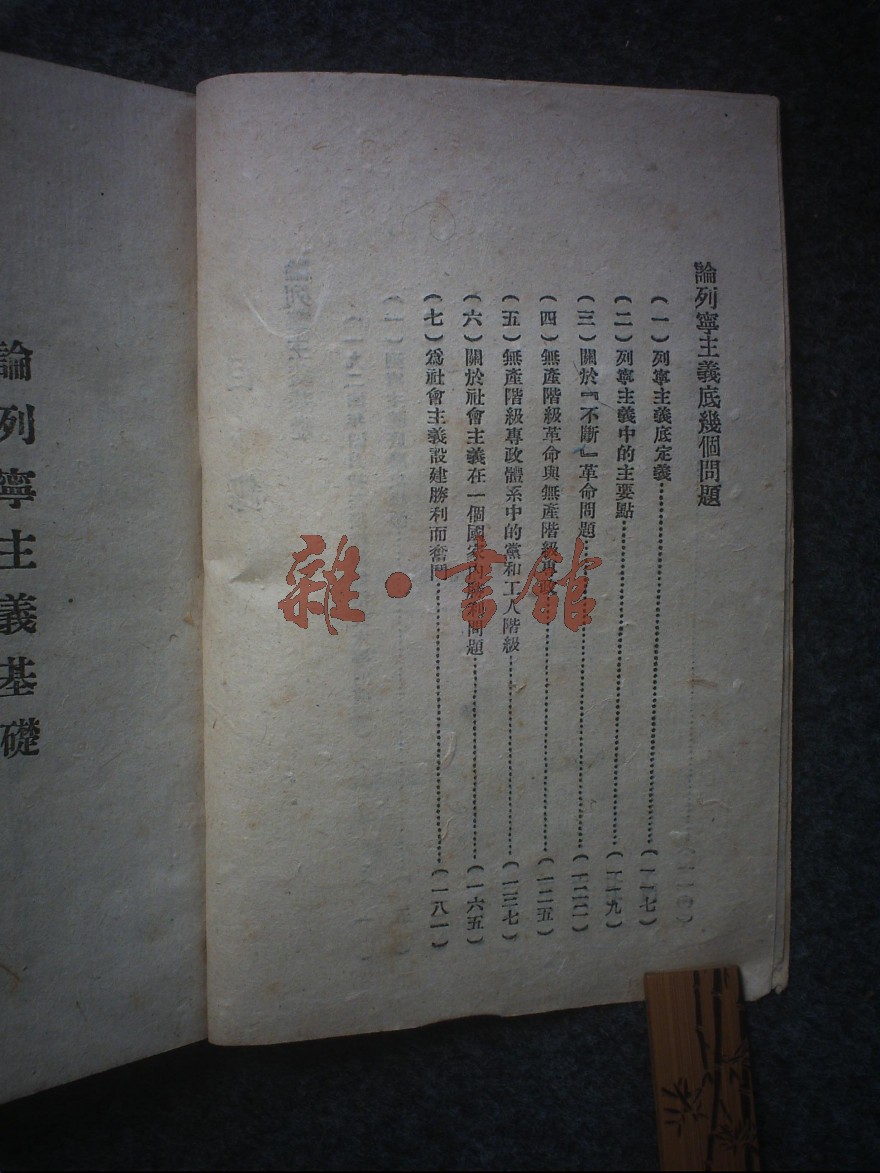 論列寧主義底幾個問題
(一) 列寧主義底定義……(一一七)
(二) 列寧主義中的主要點……(一一九)
(三) 關於『不斷』革命問題……(一二二)
(四) 無產階級革命與無產階級專政……(一二五)
(五) 無產階級專政體系中的黨和工人階級……(一三七)
(六) 關於社會主義在一個國家內勝利問題……(一六五)
(七) 爲社會主義設建勝利而奮鬥……(一八一)
論列寧主義基礎
雜·書館